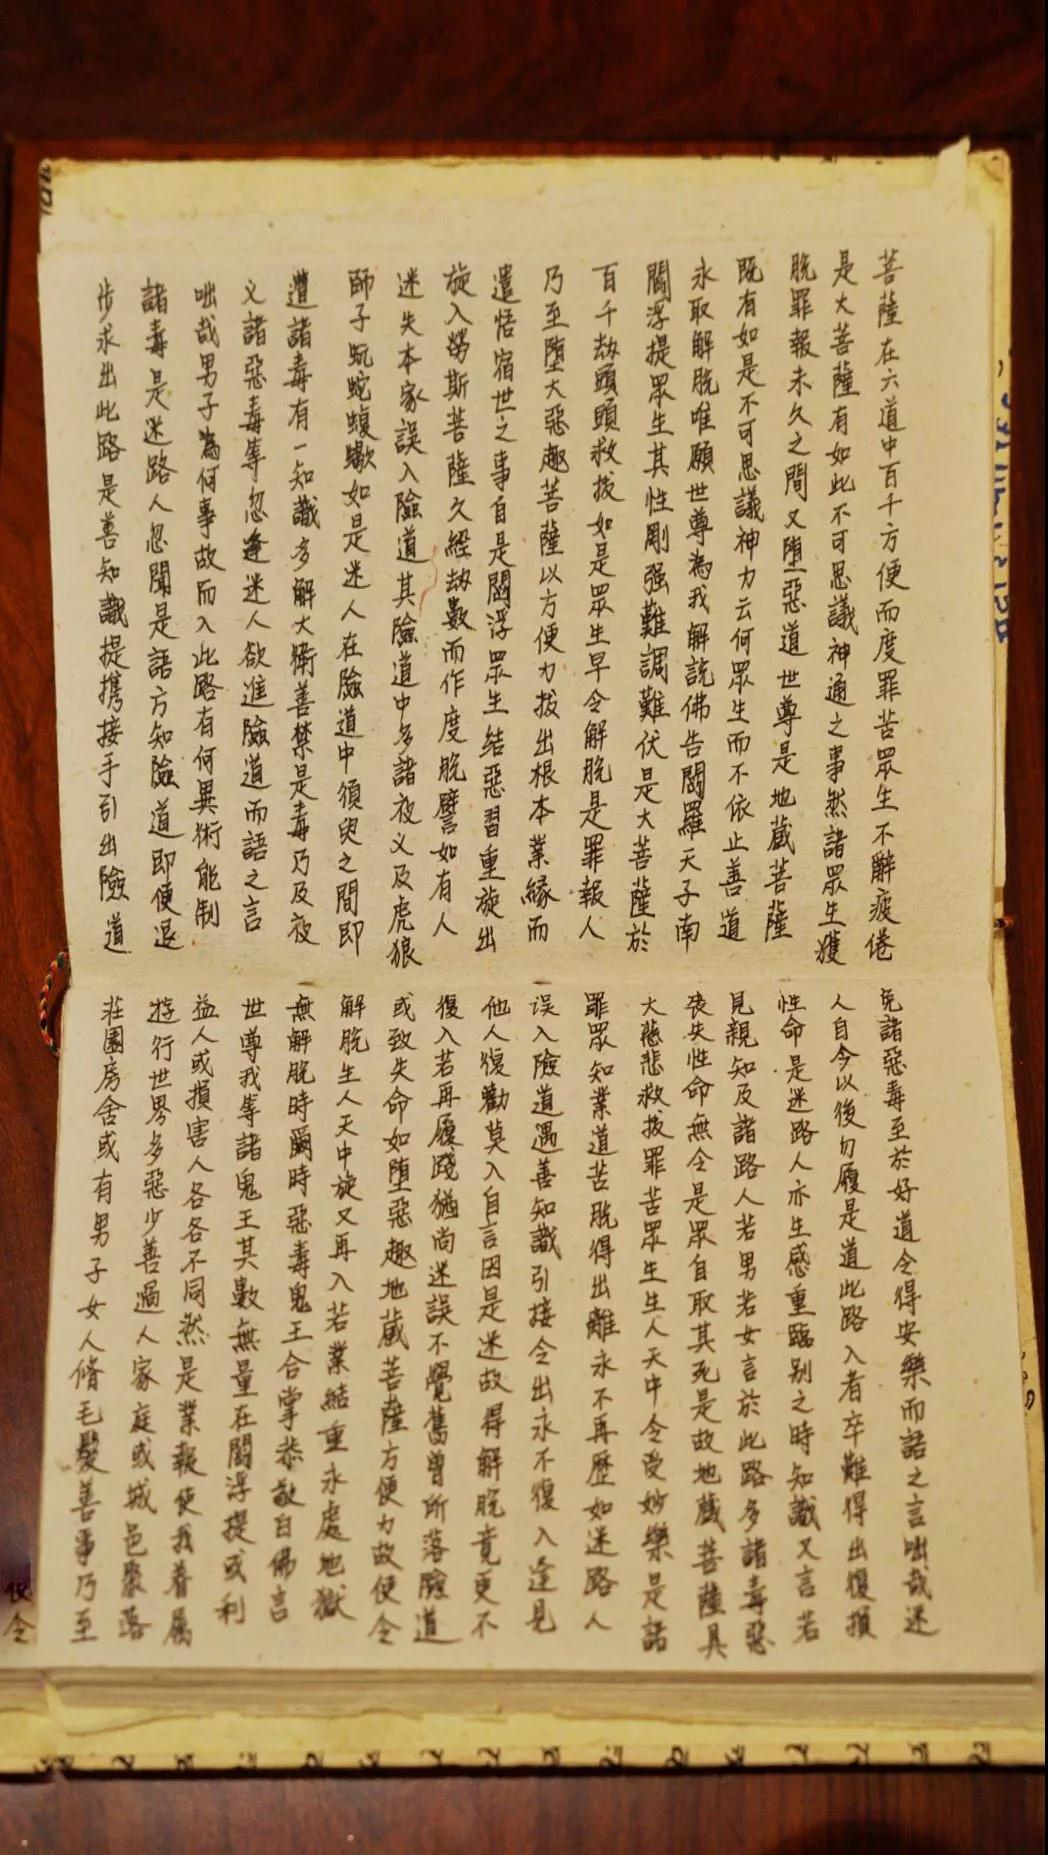 菩薩在六道中百千方便而度罪苦眾生不辭疲倦
是大菩薩有如此不可思議神通之事然諸眾生獲
脫罪報未久之間又墮惡道世尊是地藏菩薩
既有如是不可思議神力云何眾生而不依止善道
永取解脫唯願世尊為我解說佛告閻羅天子南
閻浮提眾生其性剛强難調難伏是大菩薩於
百千劫頭頭救拔如是眾生早令解脫是罪報人
乃至墮大惡趣菩薩以方便力拔出根本業緣而
遣悟宿世之事自是閻浮眾生结惡習重旋出
旋入勞斯菩薩久經劫數而作度脫譬如有人
迷失本家誤入險道其險道中多諸夜叉及虎狼
師子蚖蛇蝮蠍如是迷人在險道中須臾之間即
遭諸毒有一知識多解大術善禁是毒乃及夜
义諸惡毒等忽逢迷人欲進險道而語之言
咄哉男子為何事故而入此路有何異術能制
諸毒是迷路人忽聞是語方知險道即便退
步求出此路是善知識提携接手引出險道
免諸惡毒至於好道令得安樂而語之言咄哉迷
人自今以後勿履是道此路入者卒難得出復損
性命是迷路人亦生感重臨别之時知識又言若
見親知及諸路人若男若女言於此路多諸毒惡
喪失性命無令是眾自取其死是故地藏菩薩具
大慈悲救拔罪苦眾生生人天中令受妙樂是諸
罪眾知業道苦脫得出離永不再歷如迷路人
误入險道遇善知識引接令出永不復入逢見
他人復勸莫入自言因是迷故得解脫竟更不
復入若再履踐猶尚迷誤不覺舊曾所落險道
或致失命如墮惡趣地藏菩薩方便力故便令
解脫生人天中旋又再入若業結重永處地獄
無解脫時爾時惡毒鬼王合掌恭敬白佛言
世尊我等諸鬼王其數無量在閻浮提或利
益人或損害人各各不同然是業報使我眷属
遊行世界多惡少善過人家庭或城邑聚落
莊園房舍或有男子女人脩毛髮善事乃至
使令